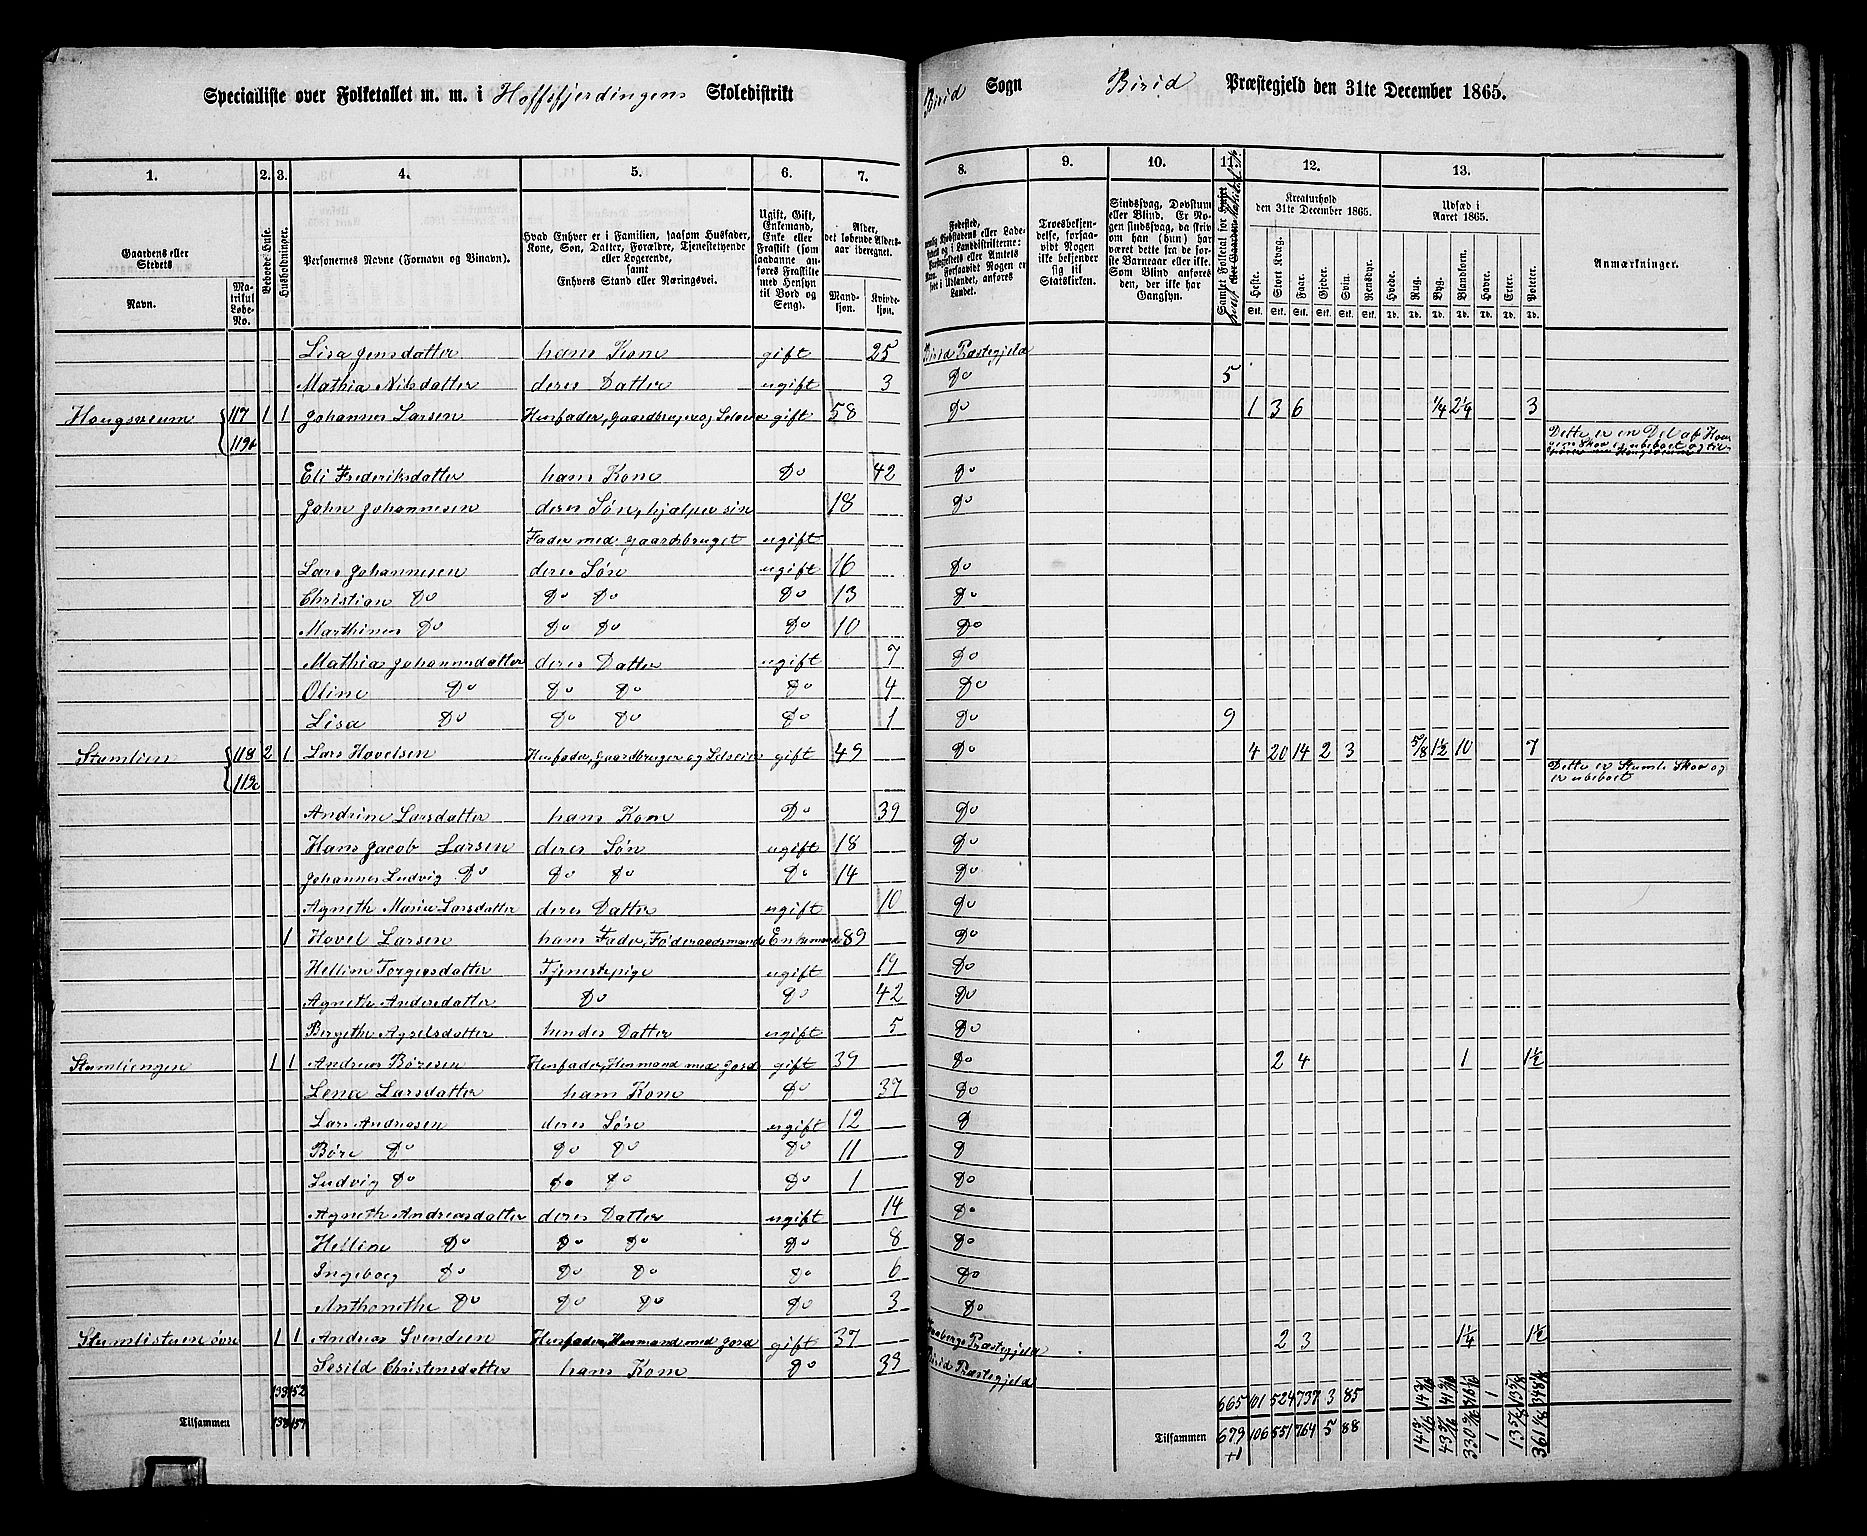 Specialliste over Folketallet m. m. i Hoffsfjerdingens Skoledistrikt
Birid Sogn Birid Præstegjeld den 31te December 1865.
1. 2. 3. 4. 5. 6. 7. 8. 9. 10. 11. 12. 13.
Gaardens eller Stedets
Navn. Matrikul Løbe-No.
Beboede Huse.
Husholdninger.
Personernes Navne (Fornavn og Binavn).
Hvad Enhver er i Familien, saasom Husfader, Kone, Søn, Datter, Forældre, Tjenestetyende eller Logerende, samt Enhvers Stand eller Næringsvei.
Ugift, Gift, Enkemand, Enke eller Fraskilt (som saadanne anføres Fraskilte med Hensyn til Bord og Seng).
Alder, det løbende Aldersaar iberegnet.
Mandkjøn. Kvindekjøn.
Troesbekjendelse, forsaavidt Nogen ikke bekjender sig til Statskirken.
Sindssvag, Døvstum eller Blind. Er Nogen sindssvag, da skriv om han (hun) har været dette fra de første Barneaar eller ikke. Som Blind anføres den, der ikke har Gangsyn.
Kreaturhold den 31te December 1865.
Heste. Stort Kvæg. Faar. Gjeder. Svin. Rensdyr.
Udsæd i Aaret 1865.
Hvede. Rug. Byg. Blandkorn. Havre. Erter. Poteter.
Stk. Stk. Stk. Stk. Stk. Stk. Td. Td. Td. Td. Td. Td. Td.
Anmærkninger.
Lisa Jensdatter hans Kone gift 25 Birid Præstegjeld
Mathia Nilsdatter deres Datter ugift 3 Do 5
Haugsveum 117 1 1 Johannes Larsen Husfader, Gaardbruger og Selveier gift 58 Do 1 3 6 1/4 2 1/4 3
119b Dette er en Del af
Eli Frederiksdatter hans Kone Do 42 Do
John Johannesen deres Søn, hjælper sin 18 Do
Fader med Gaardsbruget ugift
Lars Johannesen deres Søn ugift 16 Do
Christian Do Do Do Do 13 Do
Marthinus Do Do Do Do 10 Do
Mathia Johannsdatter deres Datter ugift 7 Do
Oline Do Do Do Do 4 Do
Lisa Do Do Do Do 1 Do 9
Stumlien 118 2 1 Lars Hovelsen Husfader, Gaardbruger og Selveier gift 49 Do 4 20 14 2 3 5/8 1 1/2 10 7
119c Dette er Stumli Skov og
er ubeboet
Andrine Larsdatter hans Kone Do 39 Do
Hans Jacob Larsen deres Søn ugift 18 Do
Johannes Ludvig Do Do Do Do 14 Do
Agneth Marie Larsdatter deres Datter ugift 10 Do
1 Hovel Larsen hans Fader, Føderaadsmand Enkemand 89 Do
Helline Torgersdatter Tjenestepige ugift 19 Do
Agneth Andersdatter Do Do 42 Do
Bergethe Axselsdatter hendes Datter ugift 5 Do
Stumliengen 1 1 Andreas Børesen Husfader, Husmand med Jord gift 39 Do 2 4 1 1 1/2
Lena Larsdatter hans Kone Do 37 Do
Lars Andreasen deres Søn ugift 12 D
Børe Do Do Do Do 11 D
Ludvig Do Do Do Do 1 Do
Agneth Andreasdatter deres Datter ugift 14 Do
Helline Do Do Do Do 8 Do
Ingeborg Do Do Do Do 6 Do
Anthonethe Do Do Do Do 3 Do
Stumlistuen øvre 1 1 Andreas Svendsen Husfader, Husmand med Jord gift 37 Faabergs Præstegjeld 2 3 1 1/4 1 1/2
Sesild Christensdatter hans Kone Do 33 Birid Præstegjeld
133 152 665 101 524 737 3 85 1
Tilsammen 138 157 Tilsammen 679 106 551 764 5 88 1
+1